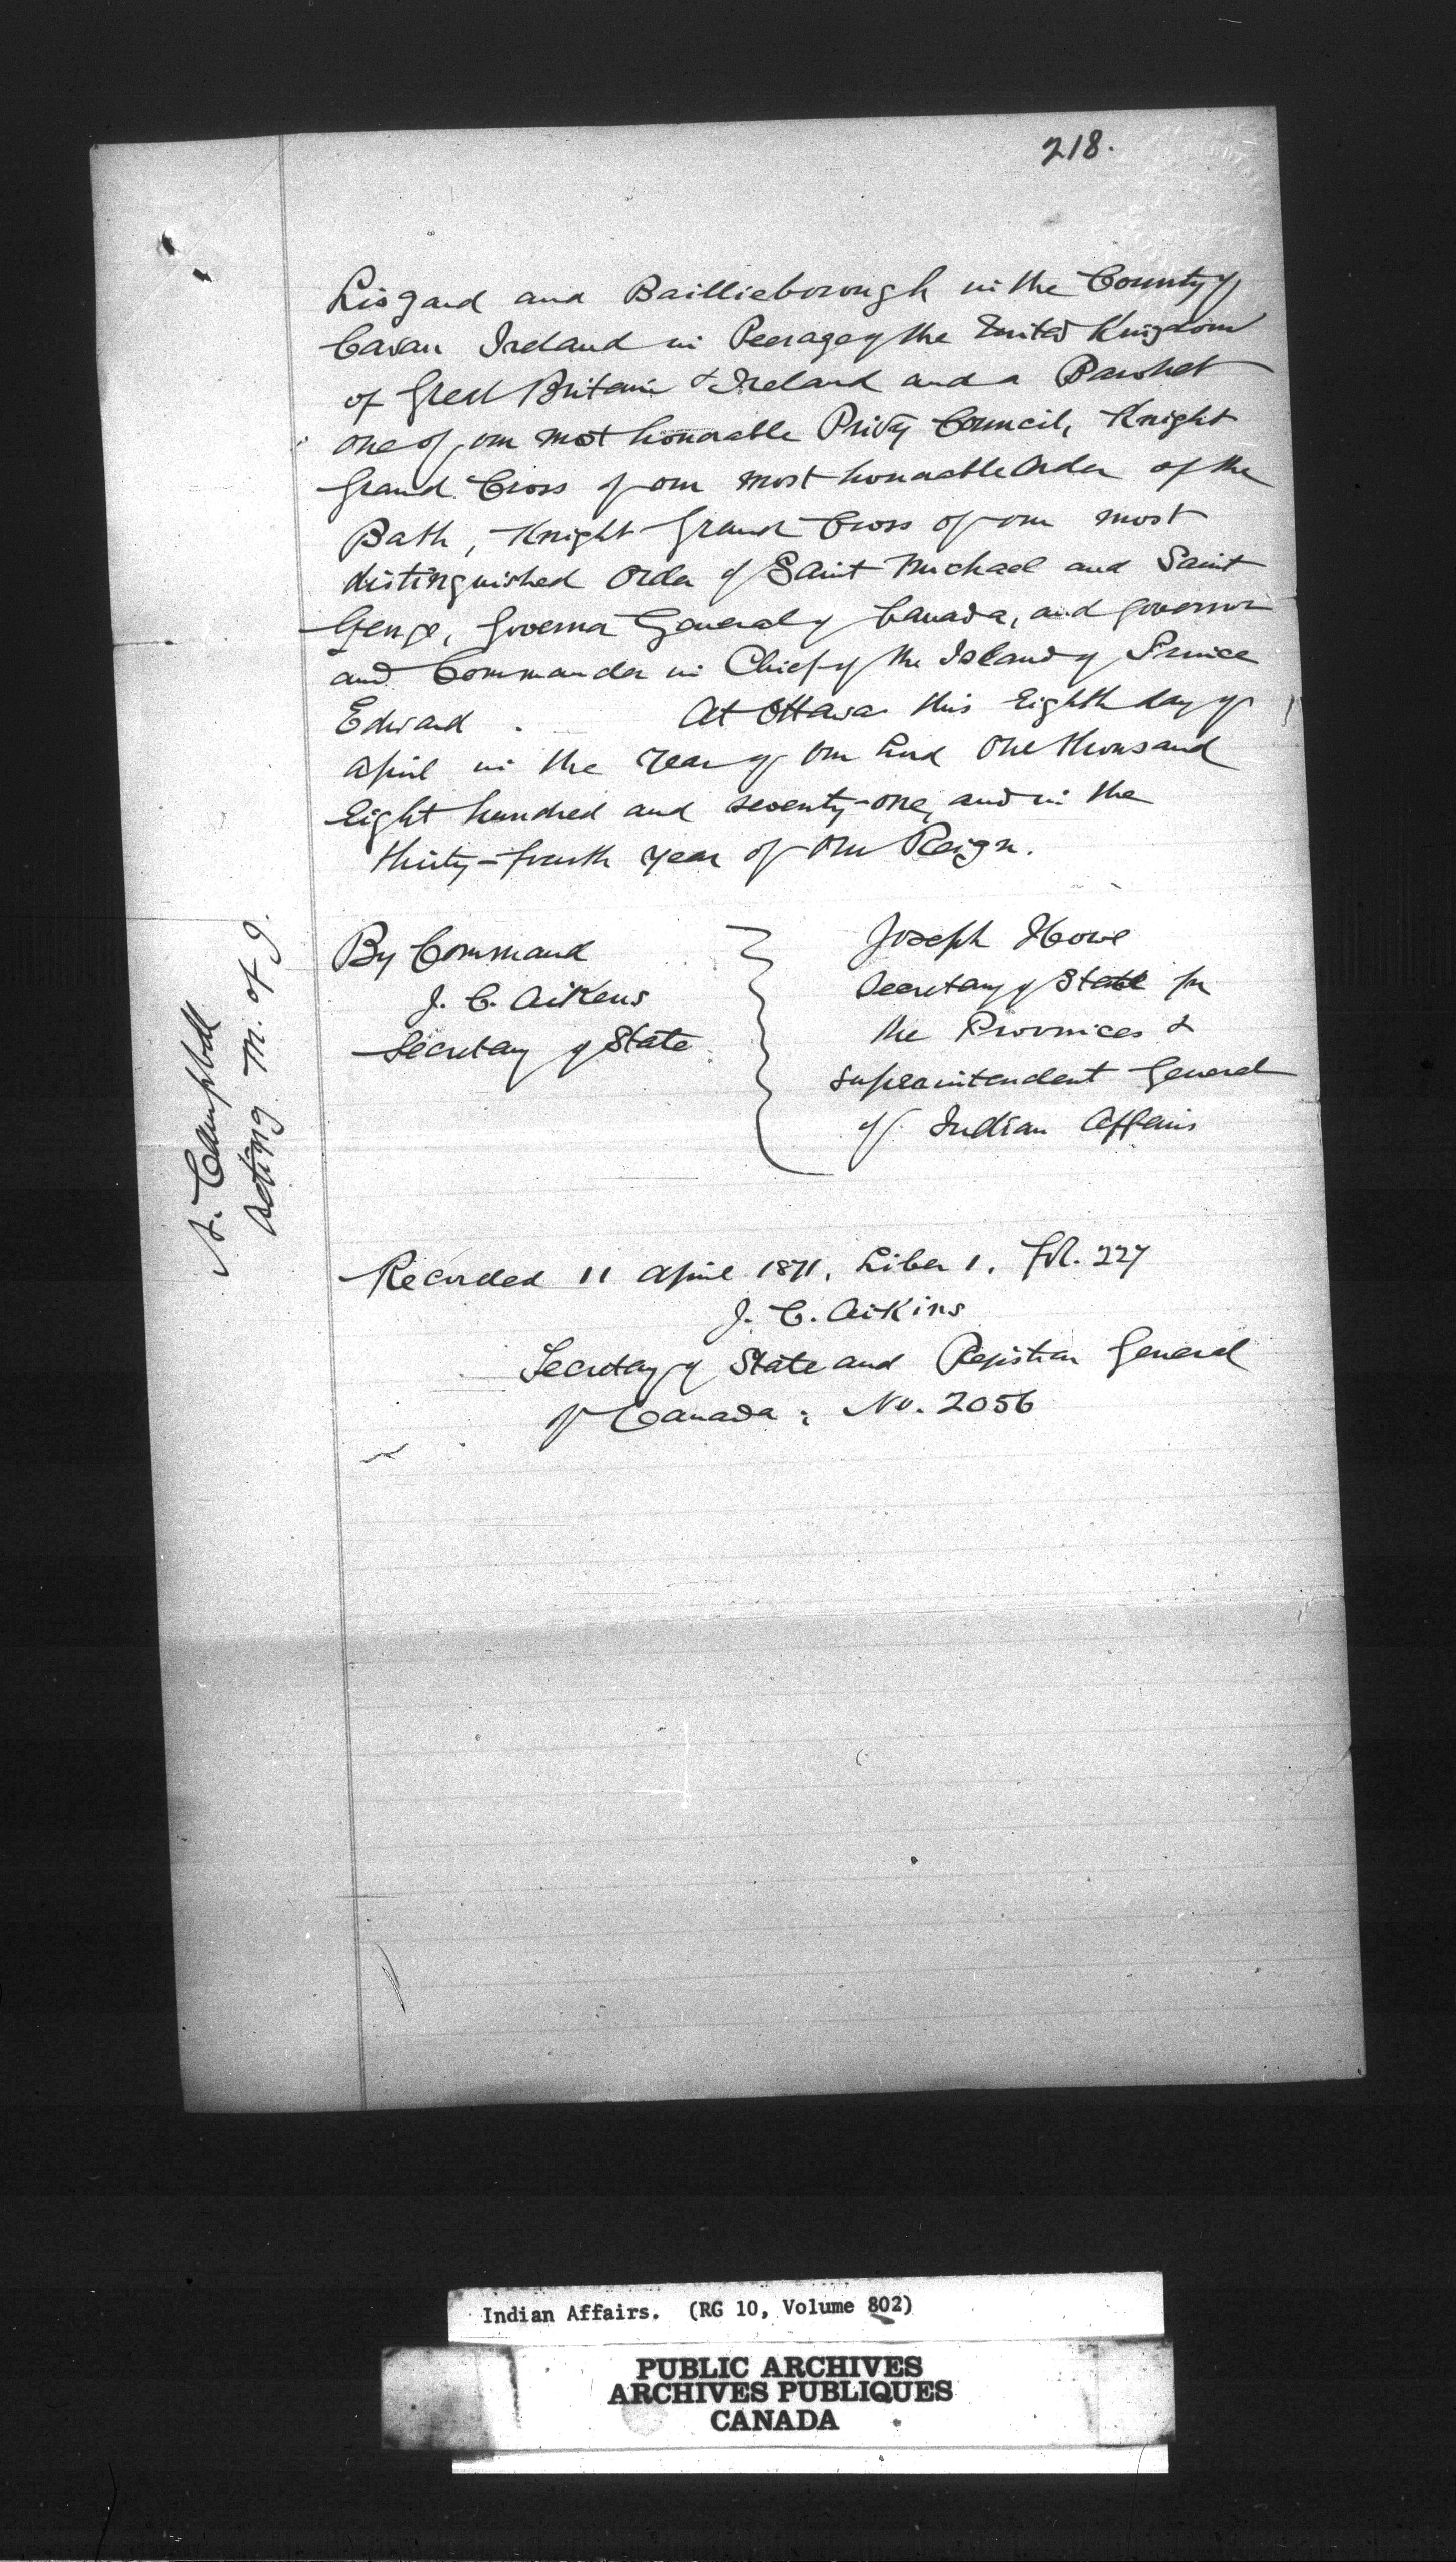 218.
Lisgard and Baillieborough in the County of
Cavan Ireland in Peerage of the United Kingdom
of Great Britain & Ireland and a Baronet
one of our most honorable Privy Council, Knight
Grand Cross of our most honorable Order of the
Bath, Knight Grand Cross of our most
distinguished Order of Saint Michael and Saint
George, Governor General of Canada, and Governor
and Commander in Chief of the Island of Prince
Edward. At Ottawa this Eighth day of
April in the Year of Our Lord One thousand
Eight hundred and seventy-one, and in the
thirty-fourth year of Our Reign.
By Command
J. C. Aikens
Secretary of State
Joseph Howe
Secretary of State for
the Provinces &
Superintendent General
of Indian Affairs
A. Campbell
Acting M. of J.
Recorded 11 April 1871, Liber 1. Fol. 227
J. C. Aikins
Secretary of State and Registrar General
of Canada: No. 2056
Indian Affairs. (RG 10, Volume 802)
PUBLIC ARCHIVES
ARCHIVES PUBLIQUES
CANADA